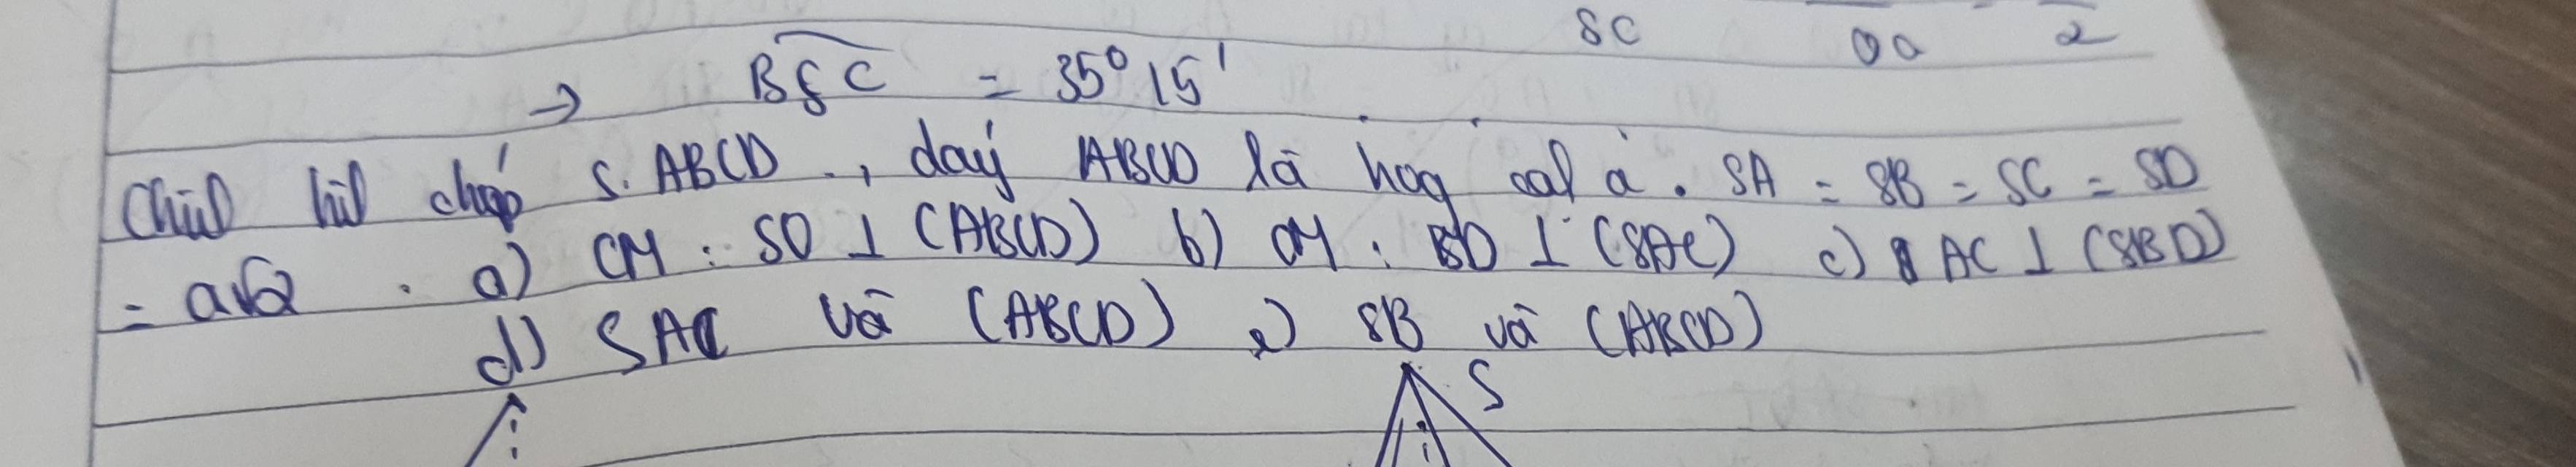 SC Oa 2
→ BSC = 35° 15'
Cho hình chóp S.ABCD , đáy ABCD là hvg cạnh a . SA = SB = SC = SD
= a√2 . a) CM : SO ⊥ (ABCD) b) CM : BD ⊥ (SAC) c) AC ⊥ (SBD)
d) SAC và (ABCD) e) SB và (ABCD)
S